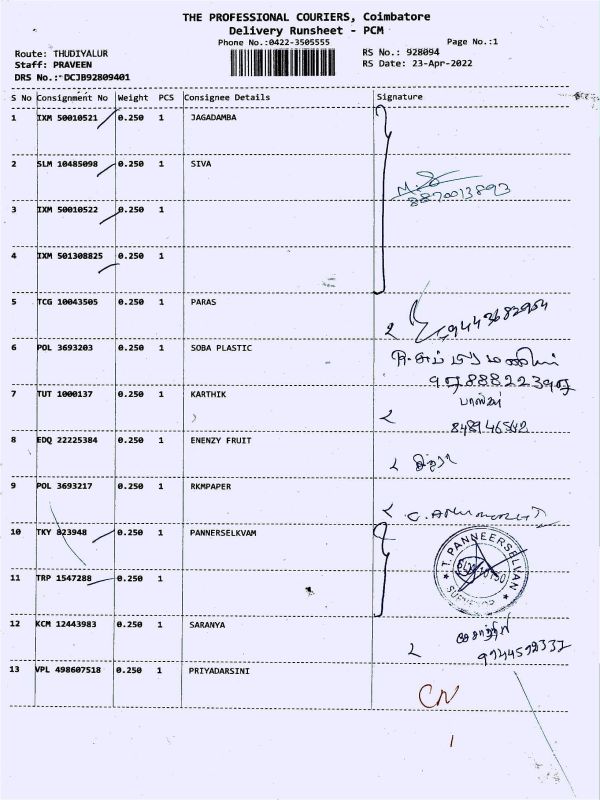 THE PROFESSIONAL COURIERS, Coimbatore
Delivery Runsheet - PCM
Phone No.:0422-3505555 Page No.:1
Route: THUDIYALUR RS No.: 928094
Staff: PRAVEEN RS Date: 23-Apr-2022
DRS No.: DCJB92809401
S No Consignment No Weight PCS Consignee Details Signature
1 IXM 50010521 0.250 1 JAGADAMBA
2 SLM 10485098 0.250 1 SIVA
8870013893
3 IXM 50010522 0.250 1
4 IXM 501308825 0.250 1
5 TCG 10043505 0.250 1 PARAS
6 POL 3693203 0.250 1 SOBA PLASTIC
7 TUT 1000137 0.250 1 KARTHIK
8 EDQ 22225384 0.250 1 ENENZY FRUIT
9 POL 3693217 0.250 1 RKMPAPER
10 TKY 823948 0.250 1 PANNERSELKVAM
T. PANNEERSELVAN
11 TRP 1547288 0.250 1
12 KCM 12443983 0.250 1 SARANYA
13 VPL 498607518 0.250 1 PRIYADARSINI
CN
1